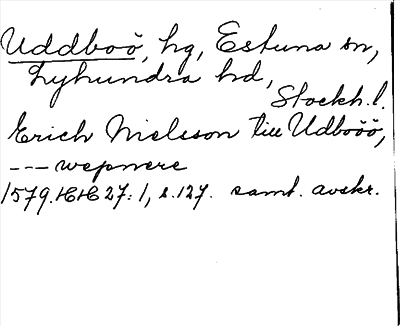 Uddboö, hg, Estuna sn,
Lyhundra hd,
Stockh. l.
Erich Nielsson till Udbööö,
--- wepnere
1579. HH 27: 1, s. 127. samt. avskr.